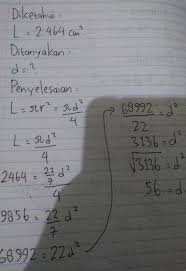 Diketahui :
L = 2.464 cm²
Ditanyakan :
d = ?
Penyelesaian :
L = πr² = πd²/4
L = πd²/4
2464 = 22/7 d²/4
9856 = 22/7 d²
68992 = 22d²
68992/22 = d²
3136 = d²
√3136 = d²
56 = d